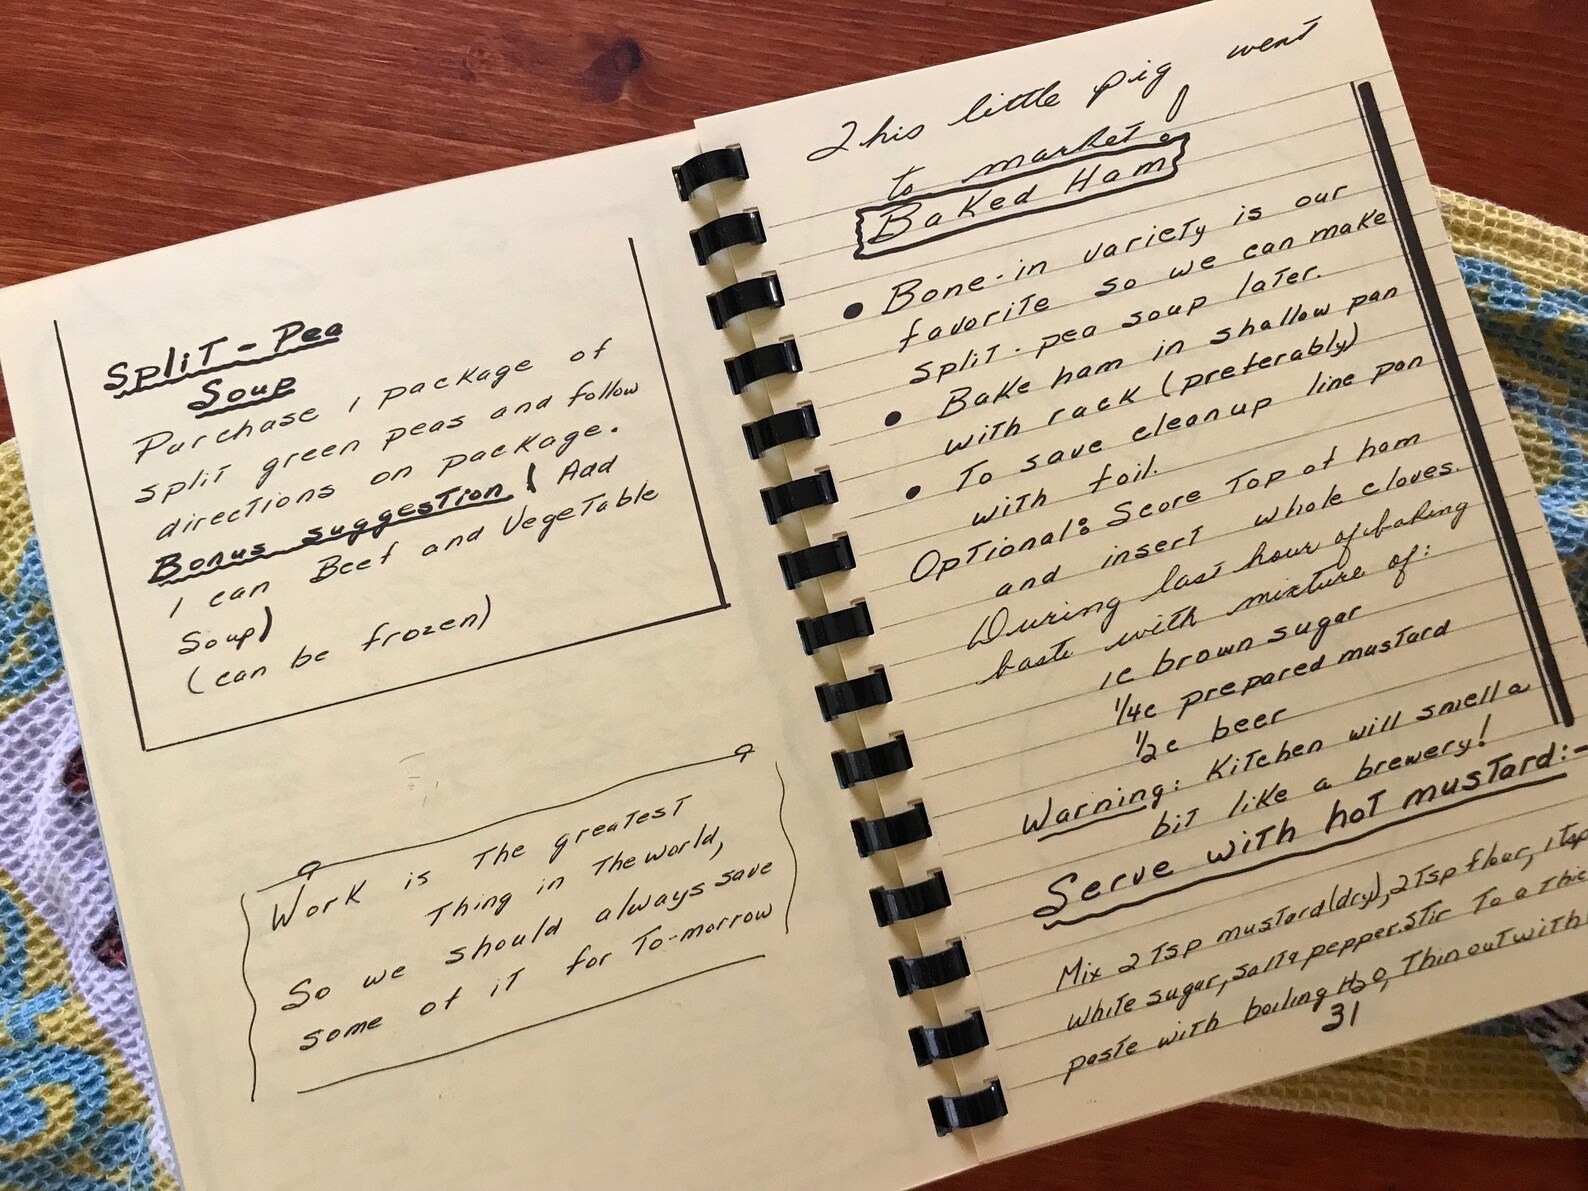 Split-Pea
Soup
Purchase 1 package of
split green peas and follow
directions on package.
Bonus suggestion! Add
1 can Beef and Vegetable
Soup)
(can be frozen)
Work is the greatest
thing in the world,
So we should always save
some of it for To-morrow
This little pig went
to market
Baked Ham
• Bone-in variety is our
favorite so we can make
split-pea soup later.
• Bake ham in shallow pan
with rack (preferably)
• To save cleanup line pan
with foil.
Optional: Score top of ham
and insert whole cloves.
During last hour of baking
baste with mixture of:
1c brown sugar
1/4c prepared mustard
1/2c beer
Warning: Kitchen will smell a
bit like a brewery!
Serve with hot mustard:-
Mix 2 Tsp mustard (dry), 2 Tsp flour, 1 Tsp
white sugar, salt & pepper. Stir to a
paste with boiling H2O, Thin out with
31